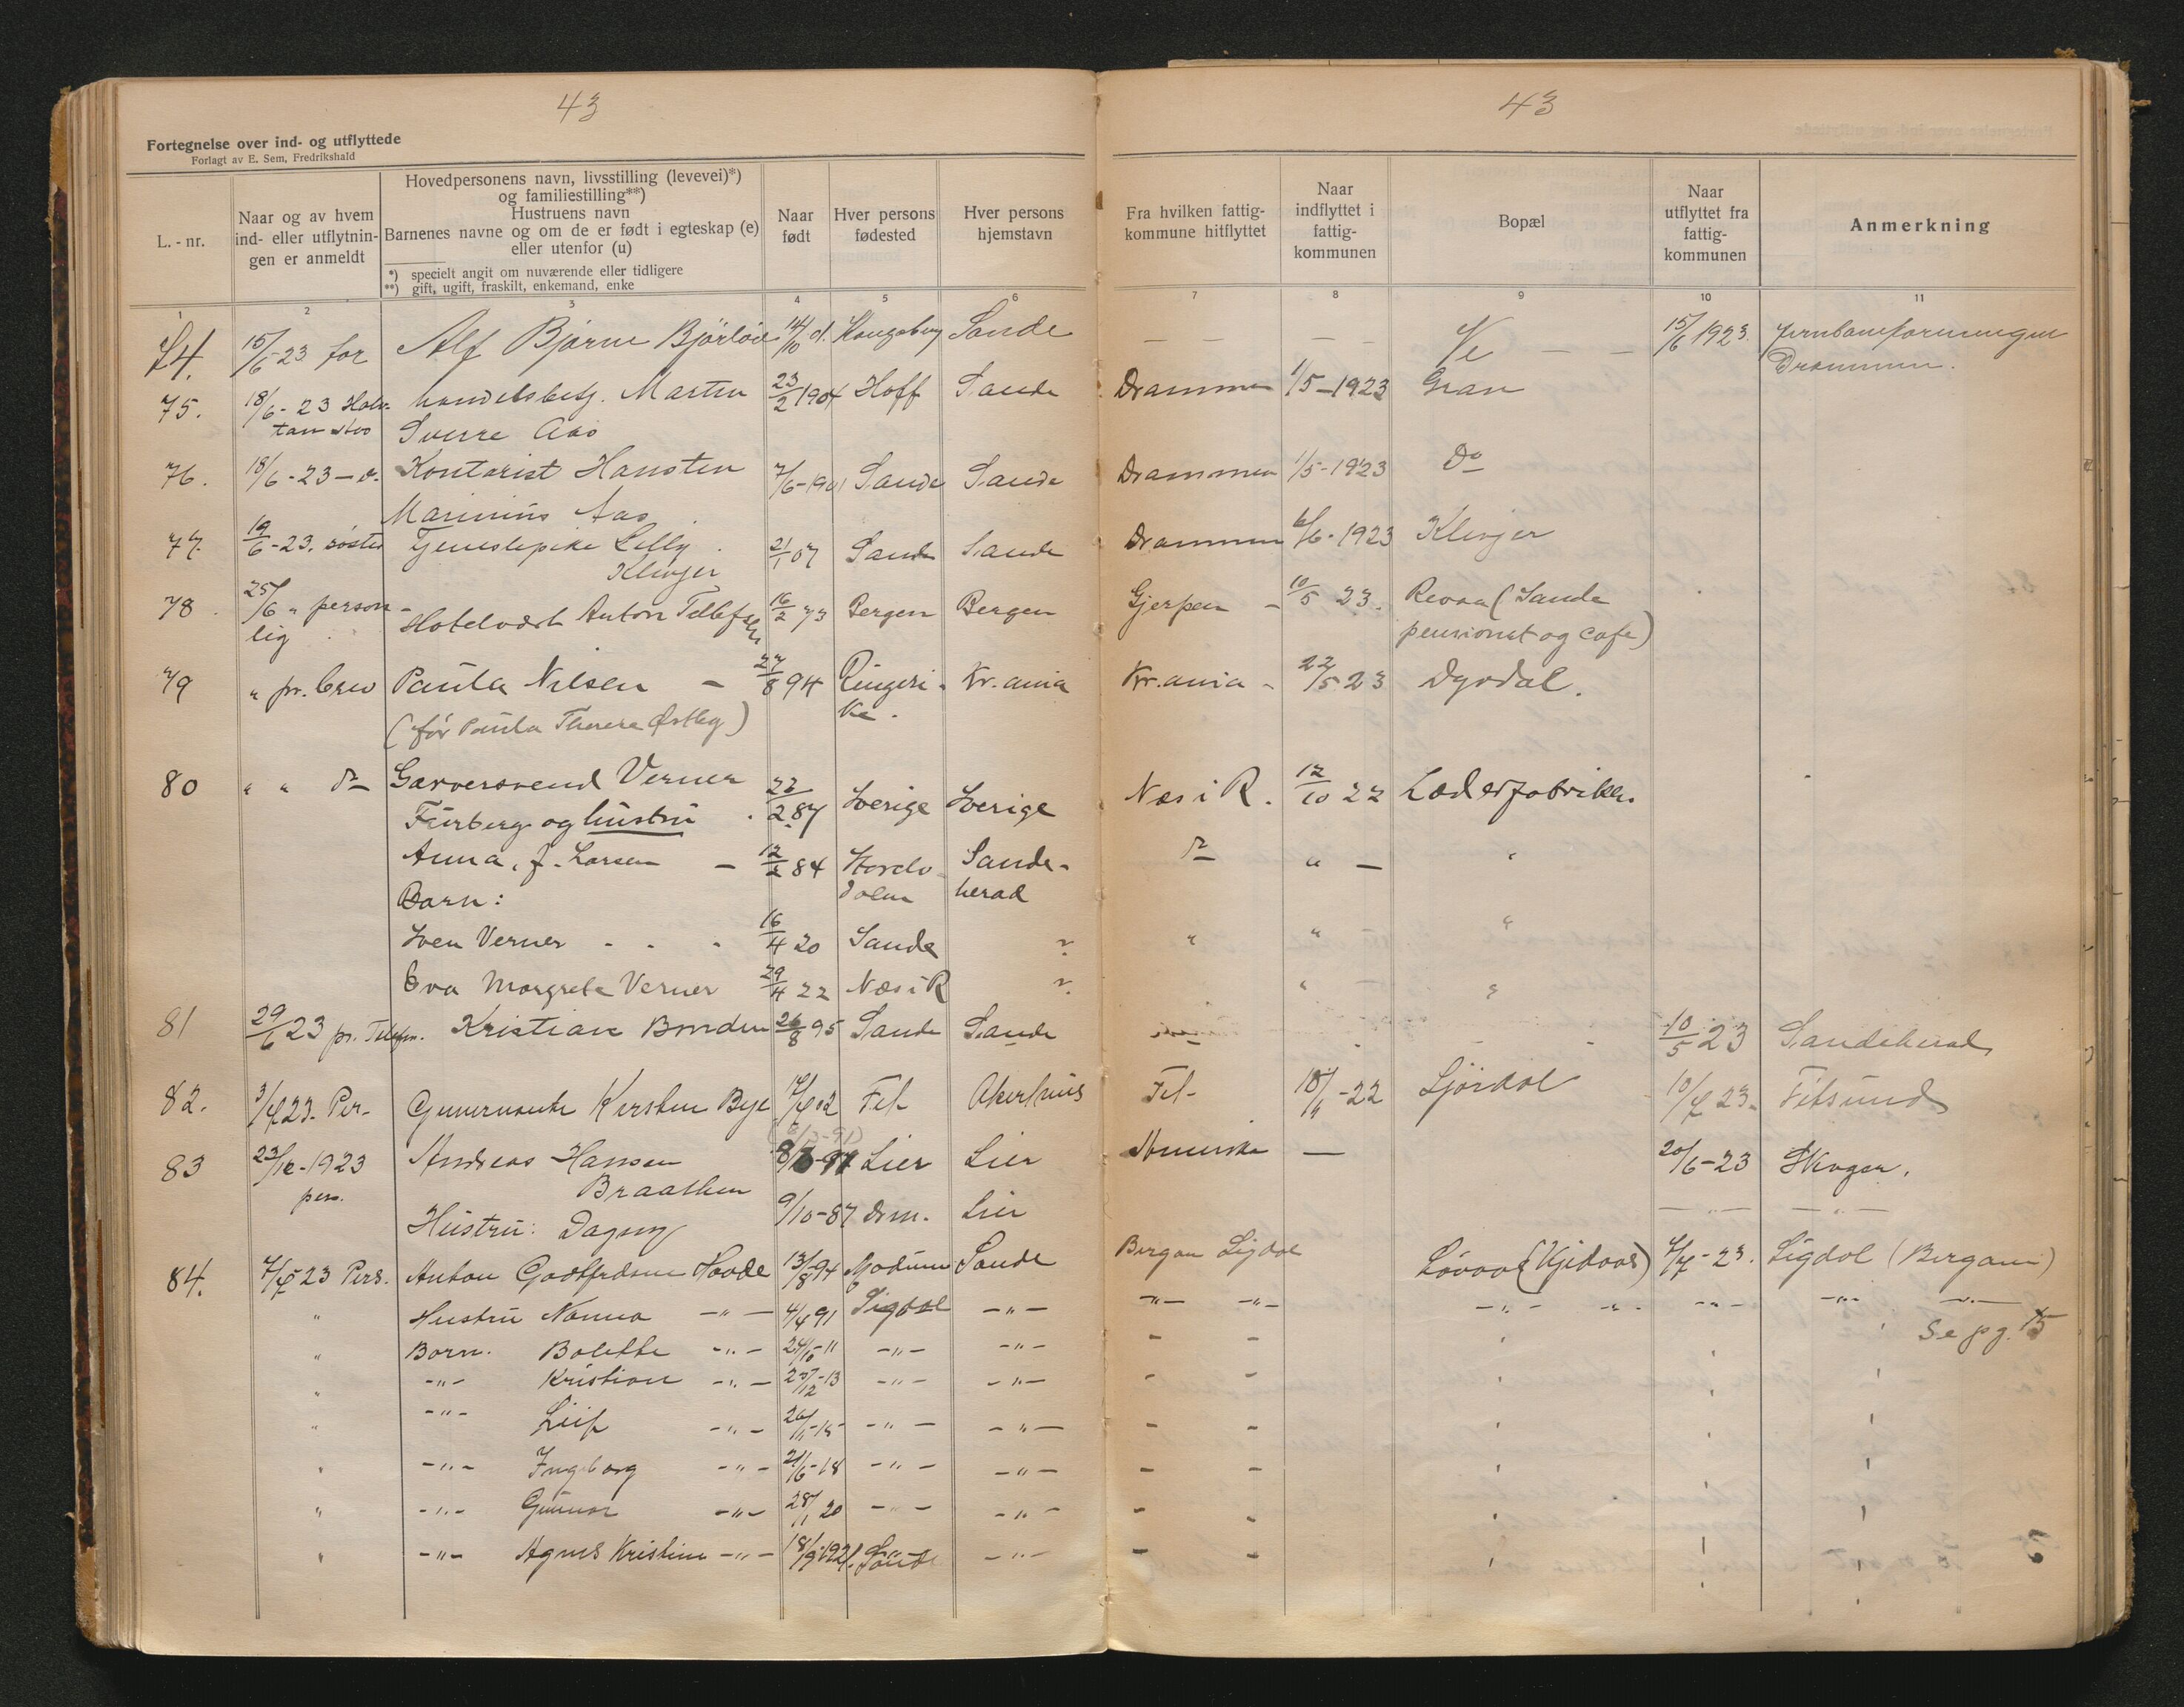 43
43
Fortegnelse over ind- og utflyttede
Forlagt av E. Sem, Fredrikshald
L. - nr.
Naar og av hvem
ind- eller utflytnin-
gen er anmeldt
Hovedpersonens navn, livsstilling (levevei)*)
og familiestilling**)
Hustruens navn
Barnenes navne og om de er født i egteskap (e)
eller utenfor (u)
*) specielt angit om nuværende eller tidligere
**) gift, ugift, fraskilt, enkemand, enke
Naar
født
Hver persons
fødested
Hver persons
hjemstavn
Fra hvilken fattig-
kommune hitflyttet
Naar
indflyttet i
fattig-
kommunen
Bopæl
Naar
utflyttet fra
fattig-
kommunen
Anmerkning
1 2 3 4 5 6 7 8 9 10 11
74. 15/6-23 far Alf Bjarne 14/10 Kongsberg Sande — — — — Ve — — 15/6 1923.
Drammen.
75. 18/6-23 handelsbetj. Martin 23/2 1904 Hoff Sande Drammen 1/5-1923 Gran
Sverre Aas
76. 18/6-23 — Kontorist Hansten 7/6-1901 Sande Sande Drammen 1/5-1923 Do
Marinius Aas
77. 19/6-23. søster Tjenestepike Lilly 21/1 07 Sande Sande Drammen 6/6-1923 Klinger
Klinger
78. 25/6 " person- Hotelvært Anton Tellefsen 16/2 73 Bergen Bergen Gjerpen - 10/5 23. Revaa (Sande
lig pensionat og cafe)
79 " pr. brev Paula Nilsen — 27/8 94 Ringeri- Kr.ania Kr.ania - 22/5 23 Dyrdal.
(før Paula Therese Østby) ke.
80 " " do Garversvend Verner 22/2 87 Sverige Sverige Næs i R. 12/10 22 Læderfabrikken
Furberg og hustru
Anna, f. Larsen — 84 Sande- do " — "
Barn: herad
Sven Verner - - - 16/4 20 Sande ? " " "
Eva Margrete Verner 29/4 22 Næs i R ? " - "
81 29/6 23 pr. Telefon. Kristian 26/8 95 Sande Sande 10/5 23 Sandeherad
82. 3/7 23. Per- Guvernante Kirsten Bye Fet Akershus Fet- 18/11-22 10/7 23. Fetsund
83 23/10-1923 Andreas Hansen Lier Lier Amerika — 20/6-23 Skoger.
pers. Braathen
Hustru: Dagny 9/10-87 Drm. Lier — " — — " —
84. 7/7-23 Pers. Anton Godtfredsen 13/8 94 Modum Sande Bergan Sigdal 7/7-23. Sigdal (Bergan)
" Hustru Nanna — " — 4/4 91 Sigdal — " —
Se pg. 15
" Barn. Bolette - " - 24/10-11 - " - - " -
" - " - Kristian - " - 27/12-13 - " - - " -
" - " - Leif - " - 26/11-15 - " - - " -
" - " - Ingeborg - " - 21/6-18 - " - - " -
" - " - Gunnar - " - 28/1 20 - " - - " -
" - " - Agnes Kristine - " - 18/9 1921. Sande - " -